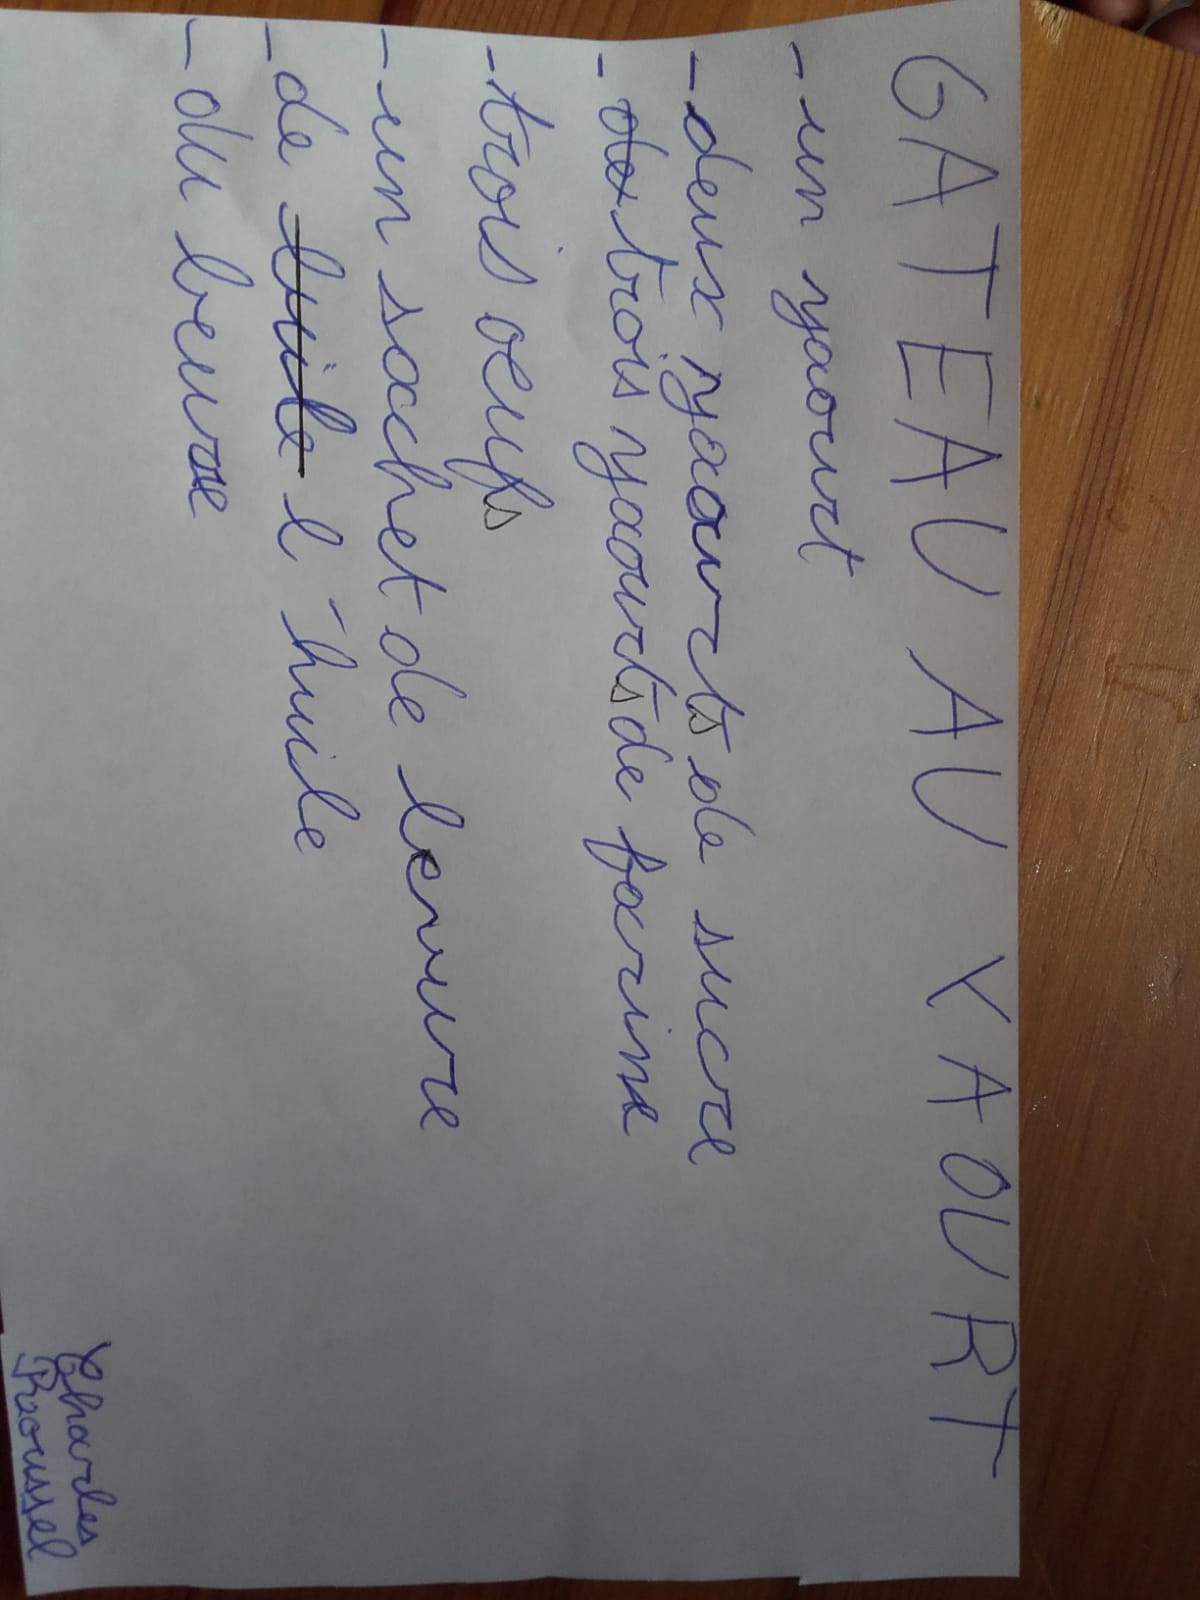 GATEAU AU YAOURT
- un yaourt
- deux yaourts de sucre
- trois yaourts de farine
- trois oeufs
- un sachet de levure
- de l'huile
- du beurre
Charles
Roussel